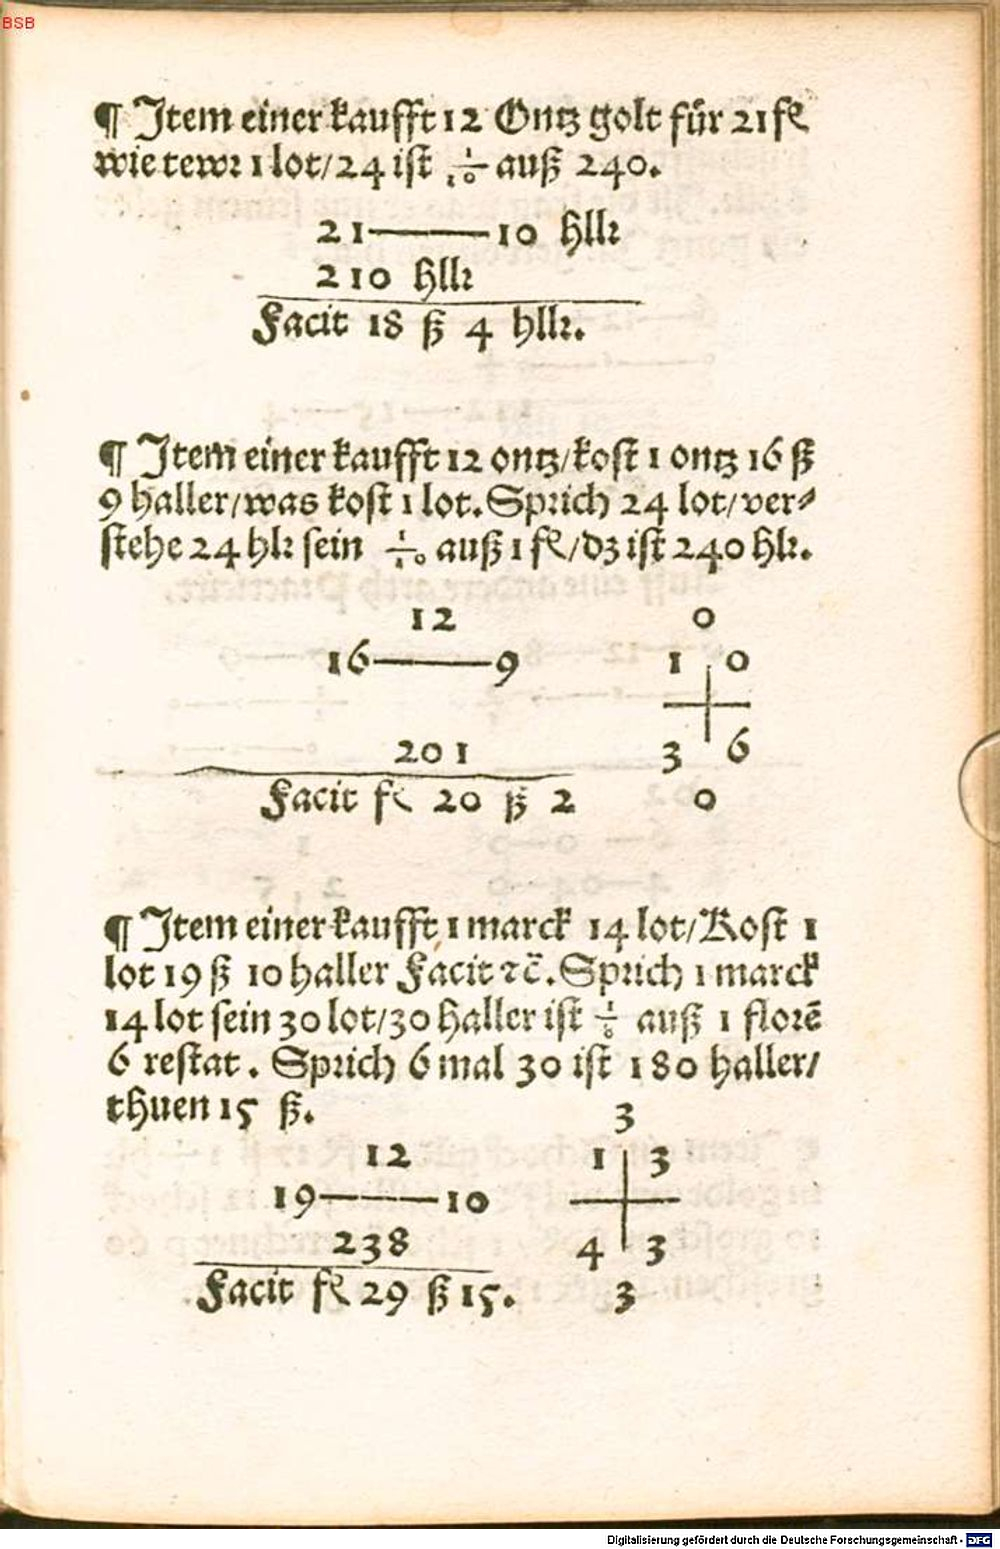 BSB
¶ Item einer kaufft 12 Ontz golt für 21 fl
wie tewr 1 lot/24 ist 1/10 auß 240.
21——10 hllr
210 hllr
Facit 18 ß 4 hllr.
¶ Item einer kaufft 12 ontz/kost 1 ontz 16 ß
9 haller/was kost 1 lot. Sprich 24 lot/ver⸗
stehe 24 hlr sein 1/10 auß 1 fl/dz ist 240 hlr.
12
16——9
201
Facit fl 20 ß 2
0
1 0
3 6
0
¶ Item einer kaufft 1 marck 14 lot/Kost 1
lot 19 ß 10 haller Facit ⁊c̄. Sprich 1 marck
14 lot sein 30 lot/30 haller ist 1/8 auß 1 florē
6 restat. Sprich 6 mal 30 ist 180 haller/
thuen 15 ß.
12
19——10
238
Facit fl 29 ß 15.
3
1 3
4 3
3
Digitalisierung gefördert durch die Deutsche Forschungsgemeinschaft - DFG